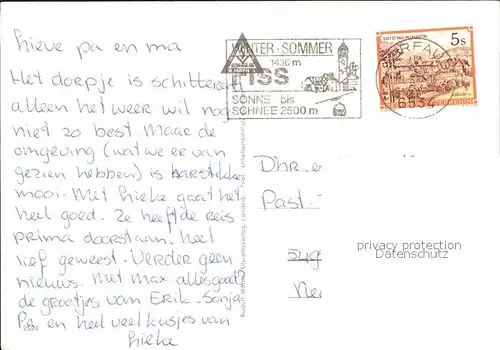 Lieve pa en ma
Het dorpje is schitterend
alleen het weer wil nog
niet zo best maar de
omgeving (wat we er van
gezien hebben) is hartstikke
mooi. Met Lieke gaat het
heel goed. Ze heeft de reis
prima doorstaan, heel
lief geweest. Verder geen
nieuws. Met Max alles goed?
de groetjes van Erik - Sonja
en heel veel kusjes van
Lieke
WINTER - SOMMER
1436 m
FISS
SONNE bis
SCHNEE 2500 m
5 s
6534
Dhr. e
Past.
5ug
Ne
privacy protection
Datenschutz